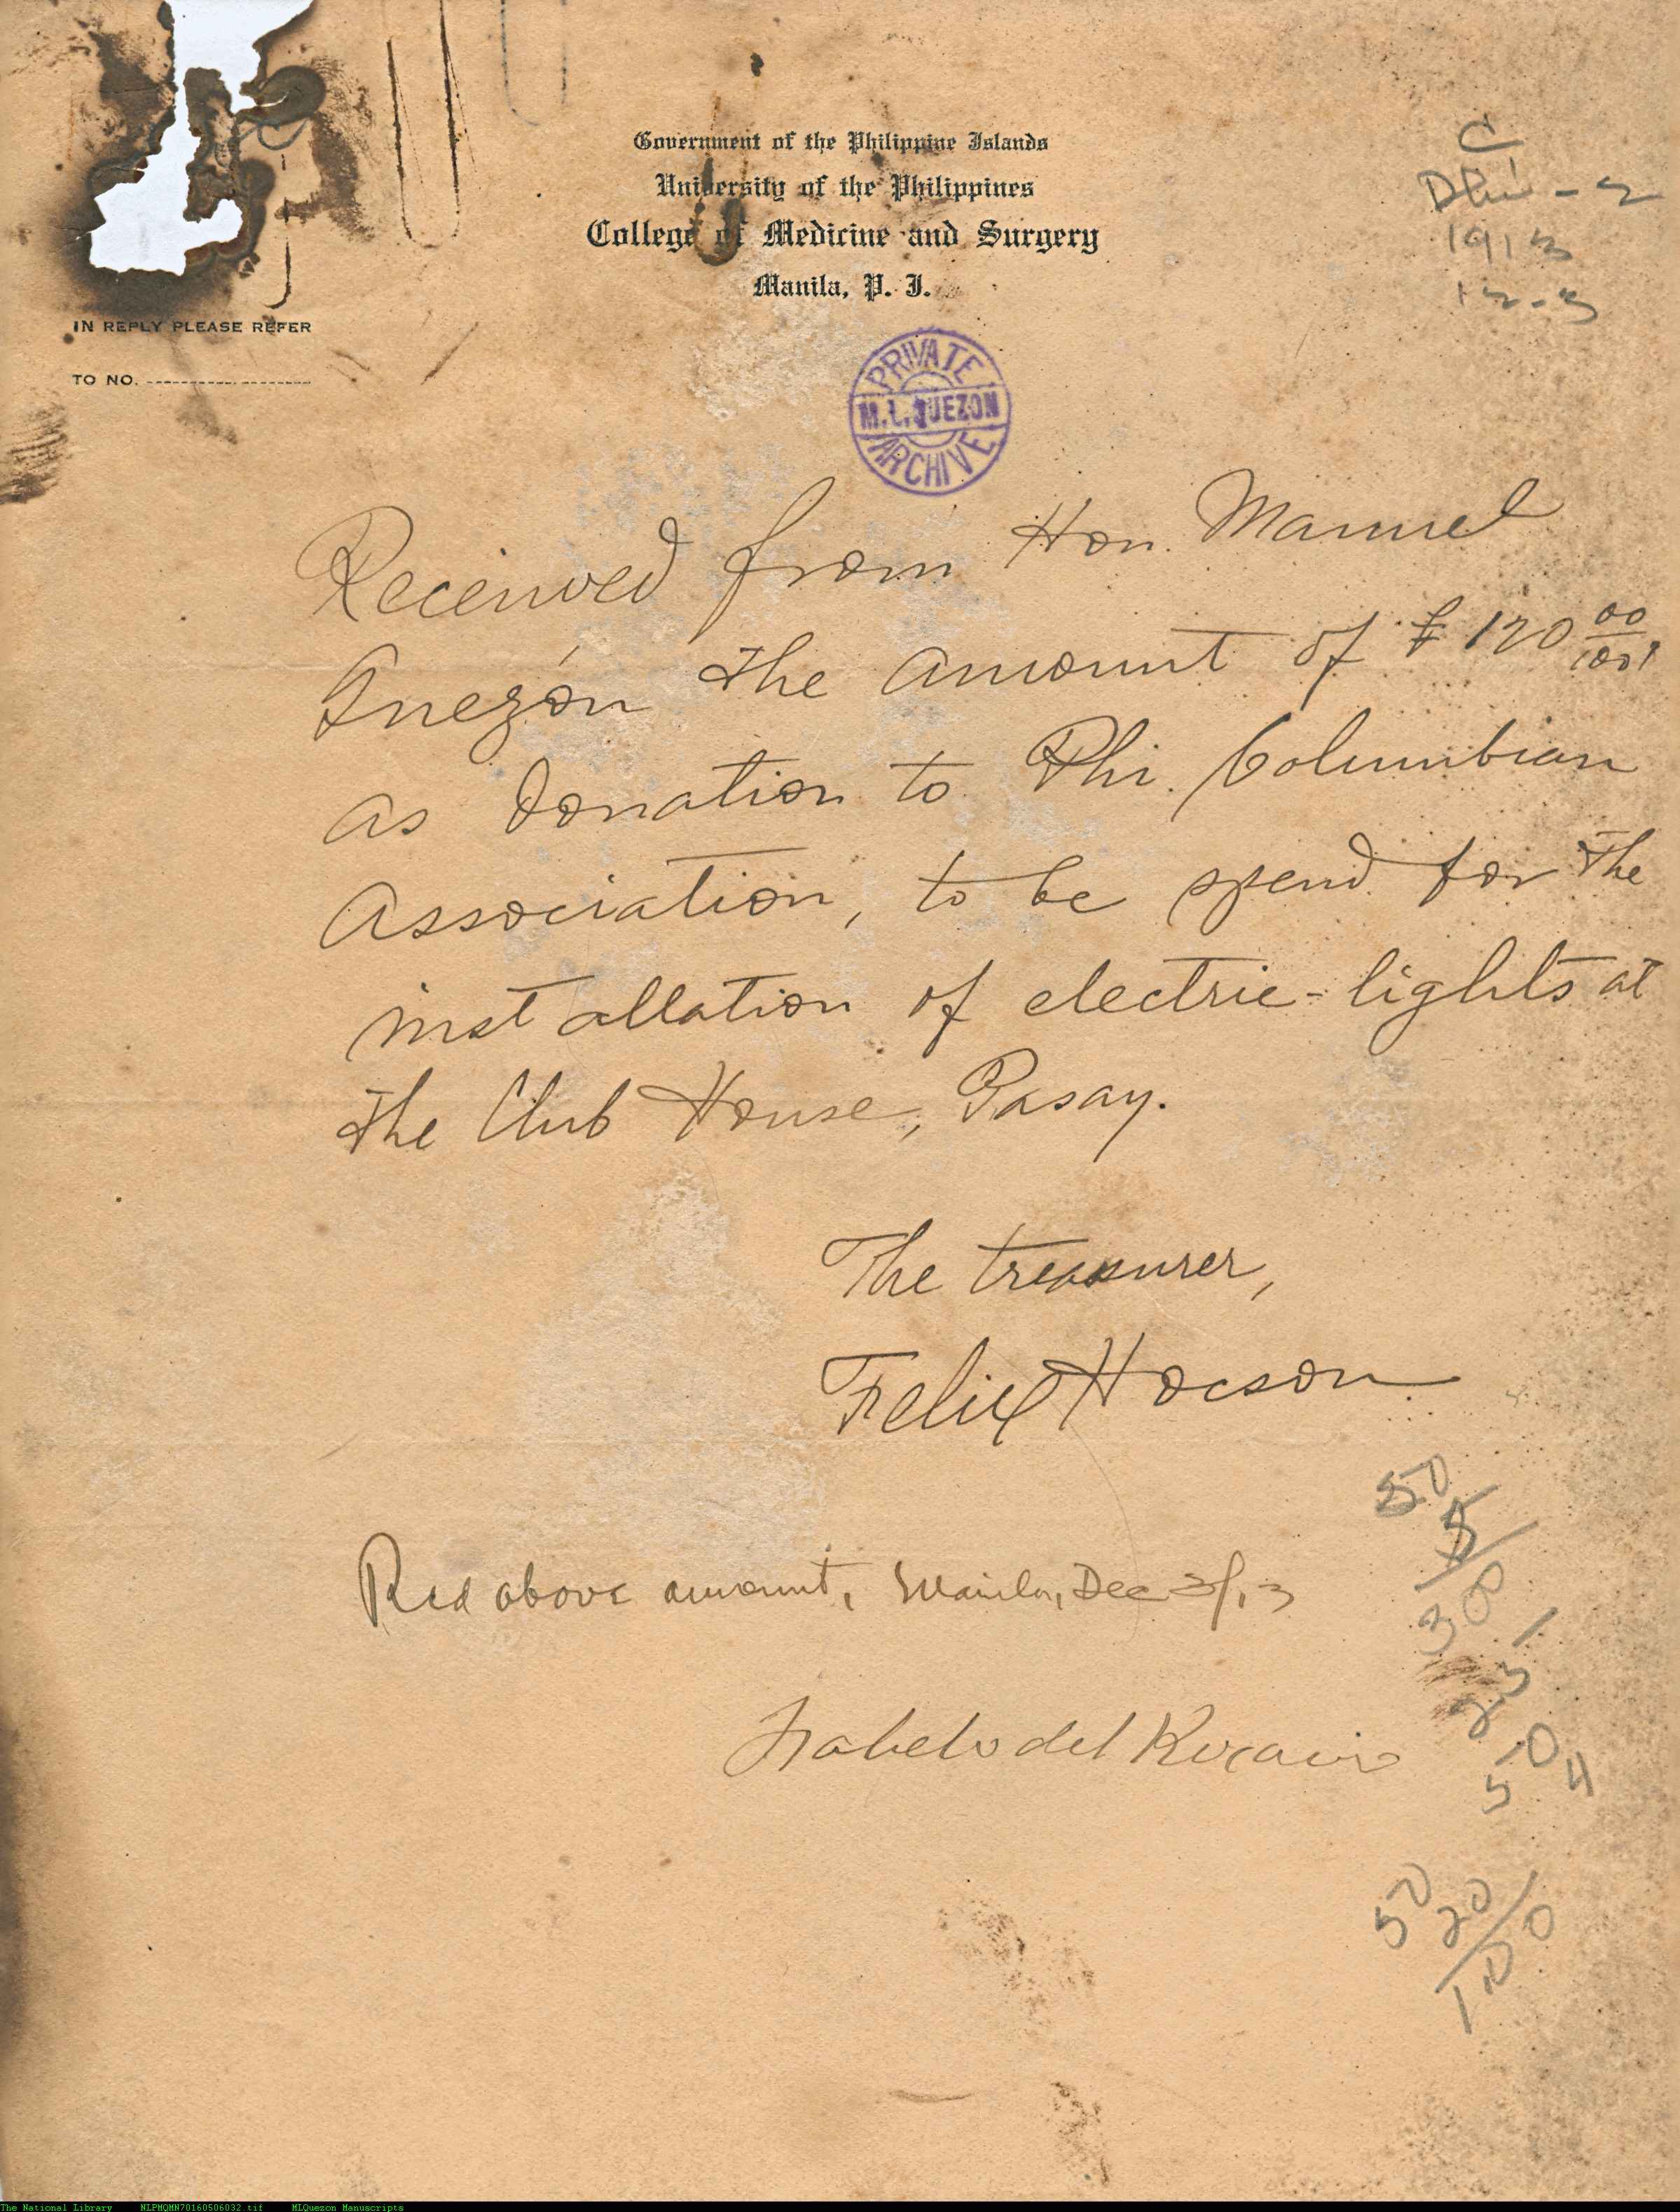 Government of the Philippine Islands
University of the Philippines
College of Medicine and Surgery
Manila, P. I.
IN REPLY PLEASE REFER
TO NO.
C
1913
12-3
PRIVATE
M.L. QUEZON
ARCHIVE
Received from Hon. Manuel
Quezón the amount of ₱ 120 00/100,
as donation to Phi. Columbian
Association, to be spend for the
installation of electric-lights at
the Club House, Pasay.
The treasurer,
Felix Hocson
Recd above amount, Manila, Dec 3/13
Isabelo del Rosario
50
5
The National Library NLPMQMN70160506032.tif MLQuezon Manuscripts